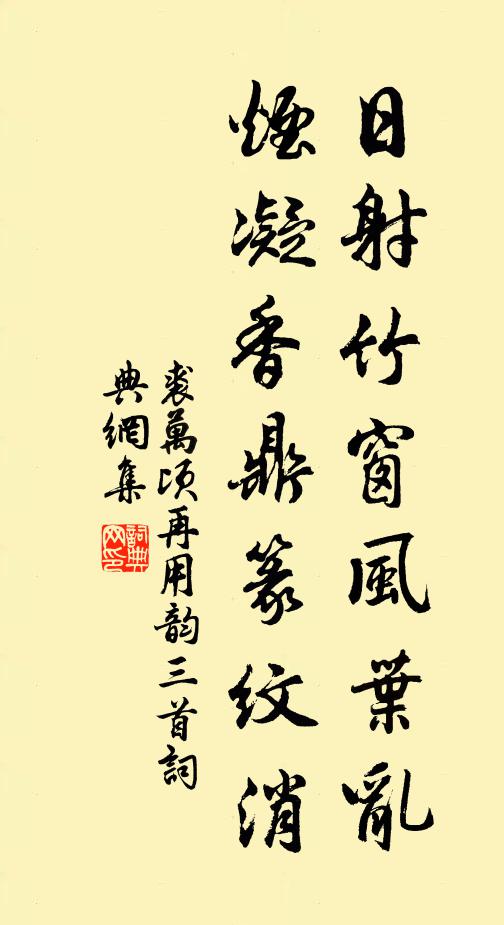 日射竹窗風葉亂
煙凝香鼎篆紋消
裘萬頃再用韵三首詞
典網集
詞典網印